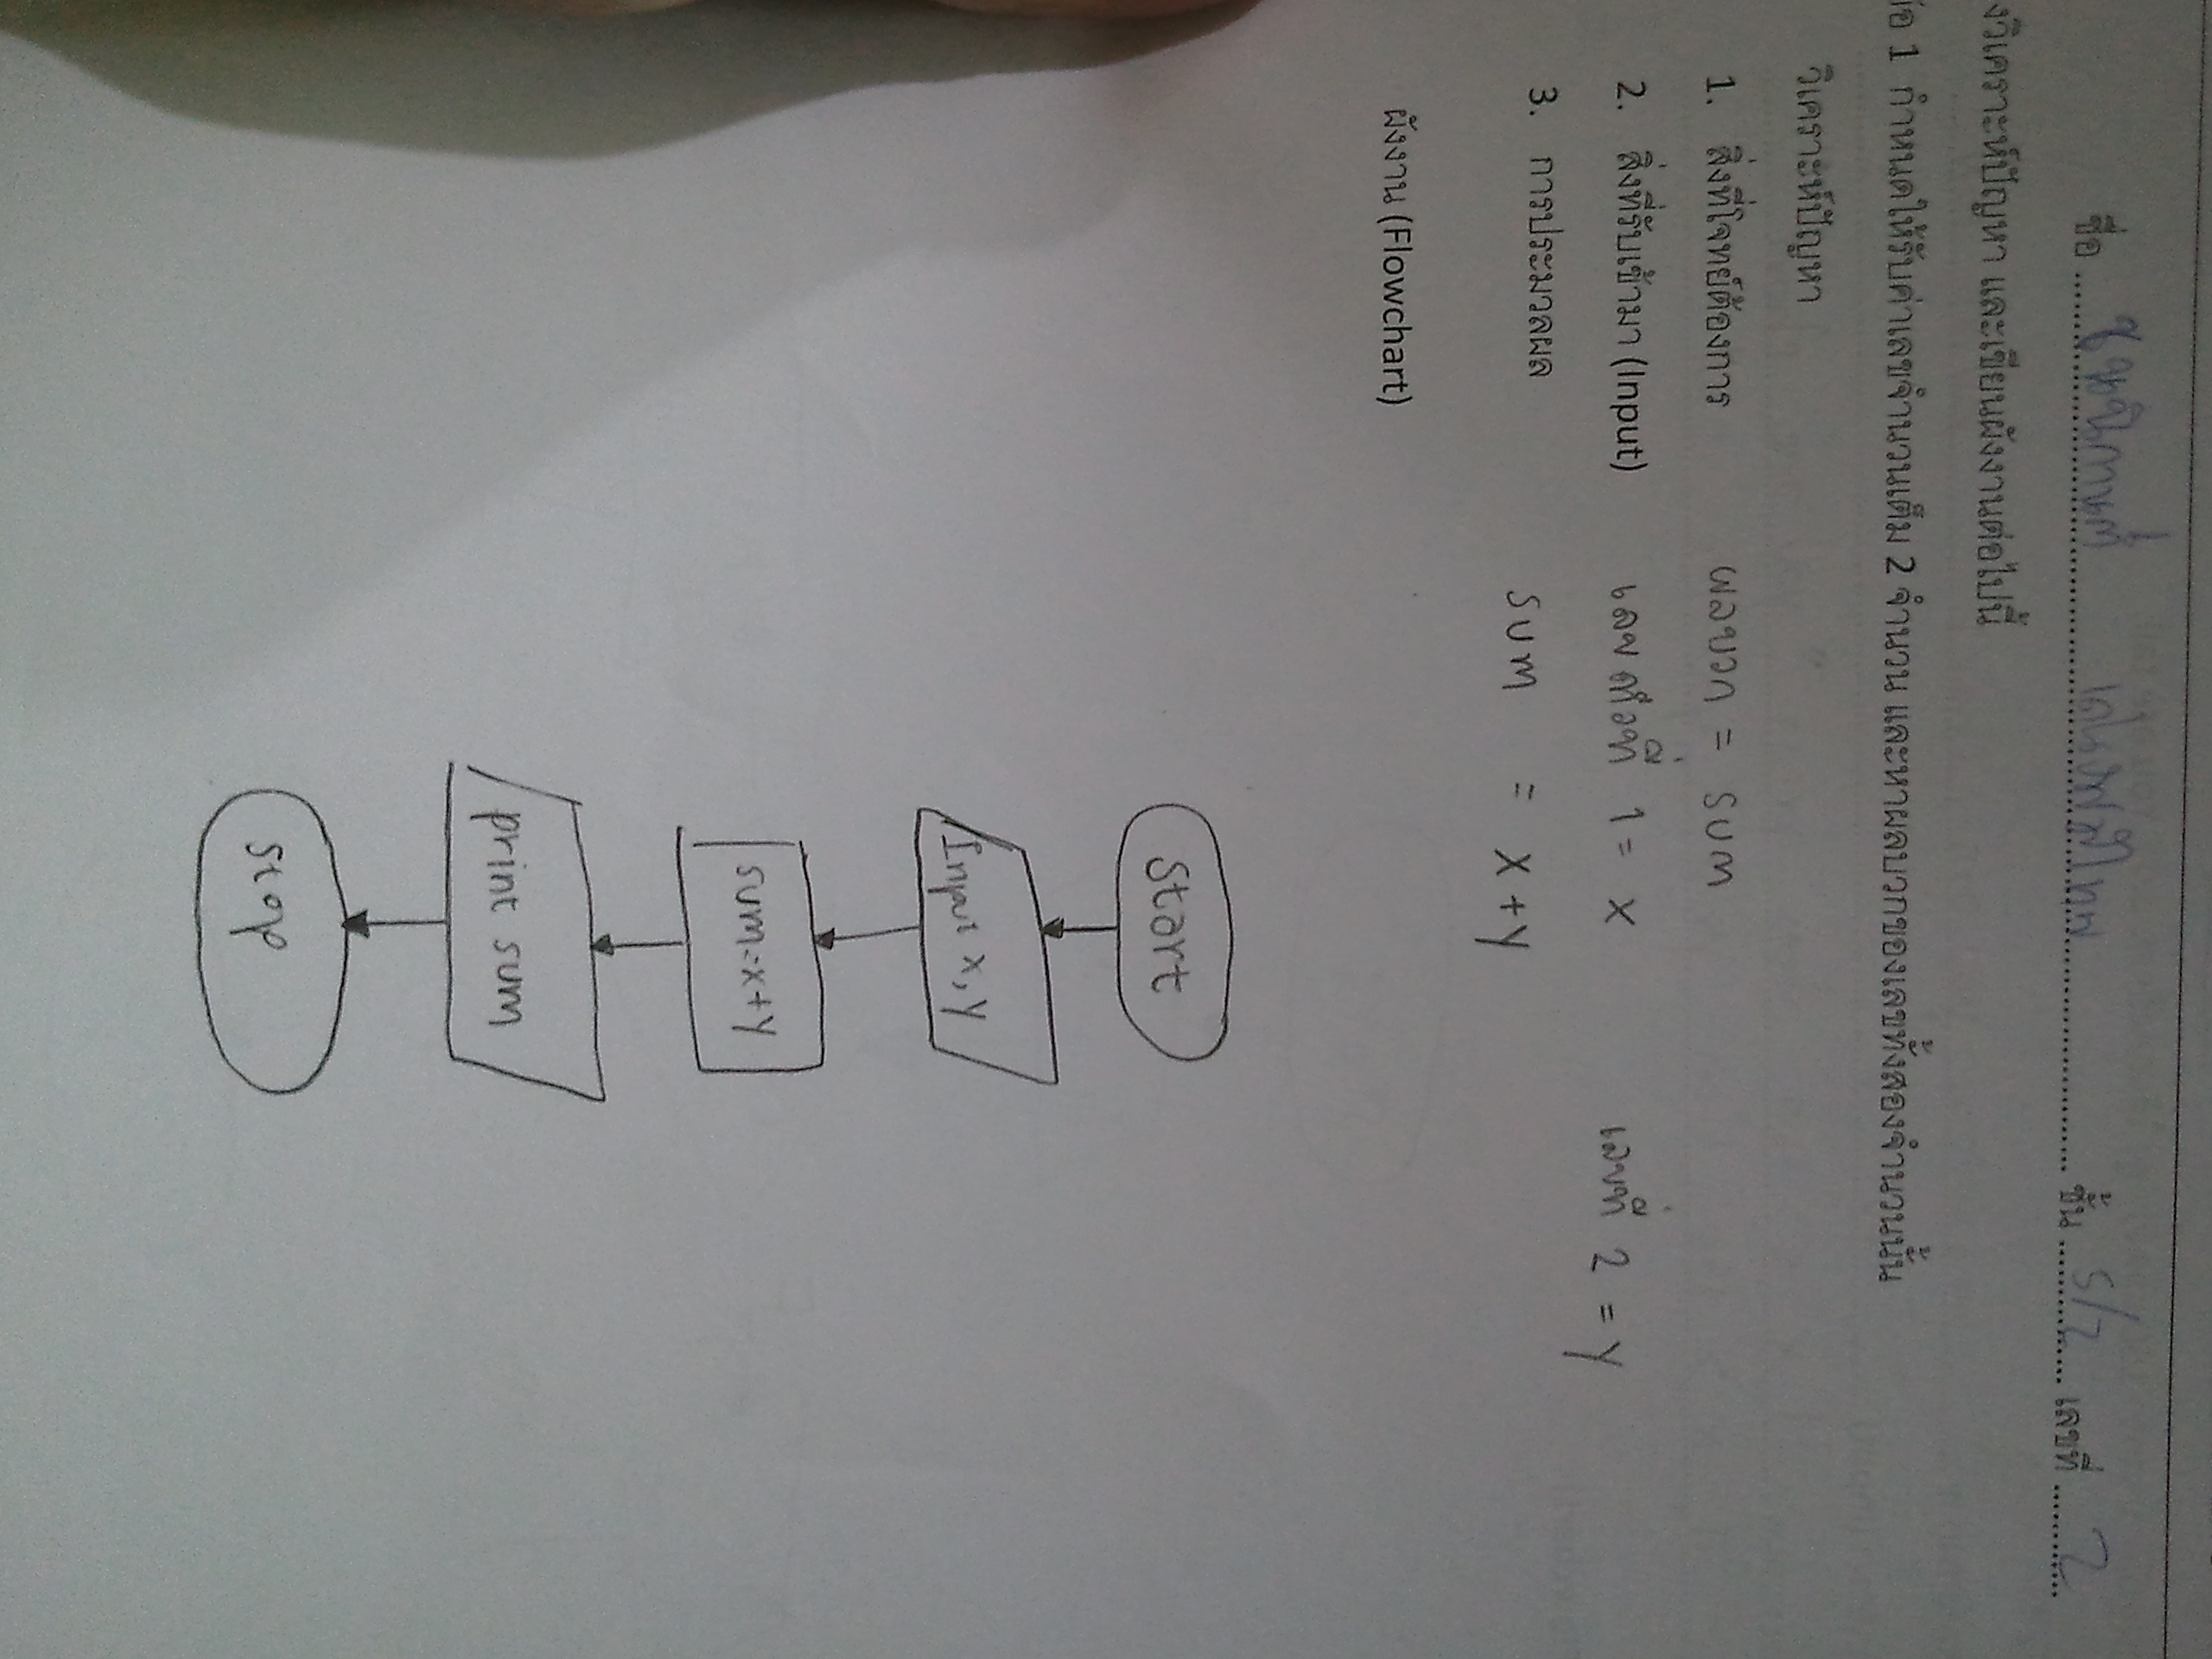 ชื่อ ชนนิกานต์ ชั้น 5/2 เลขที่ 2
งวิเคราะห์ปัญหา และเขียนผังงานต่อไปนี้
ข้อ 1 กำหนดให้รับค่าเลขจำนวนเต็ม 2 จำนวน และหาผลบวกของเลขทั้งสองจำนวนนั้น
วิเคราะห์ปัญหา
1. สิ่งที่โจทย์ต้องการ ผลบวก = sum
2. สิ่งที่รับเข้ามา (Input) เลขตัวที่ 1 = x เลขที่ 2 = y
3. การประมวลผล sum = x+y
ผังงาน (Flowchart)
Start
Input x,y
sum=x+y
print sum
Stop